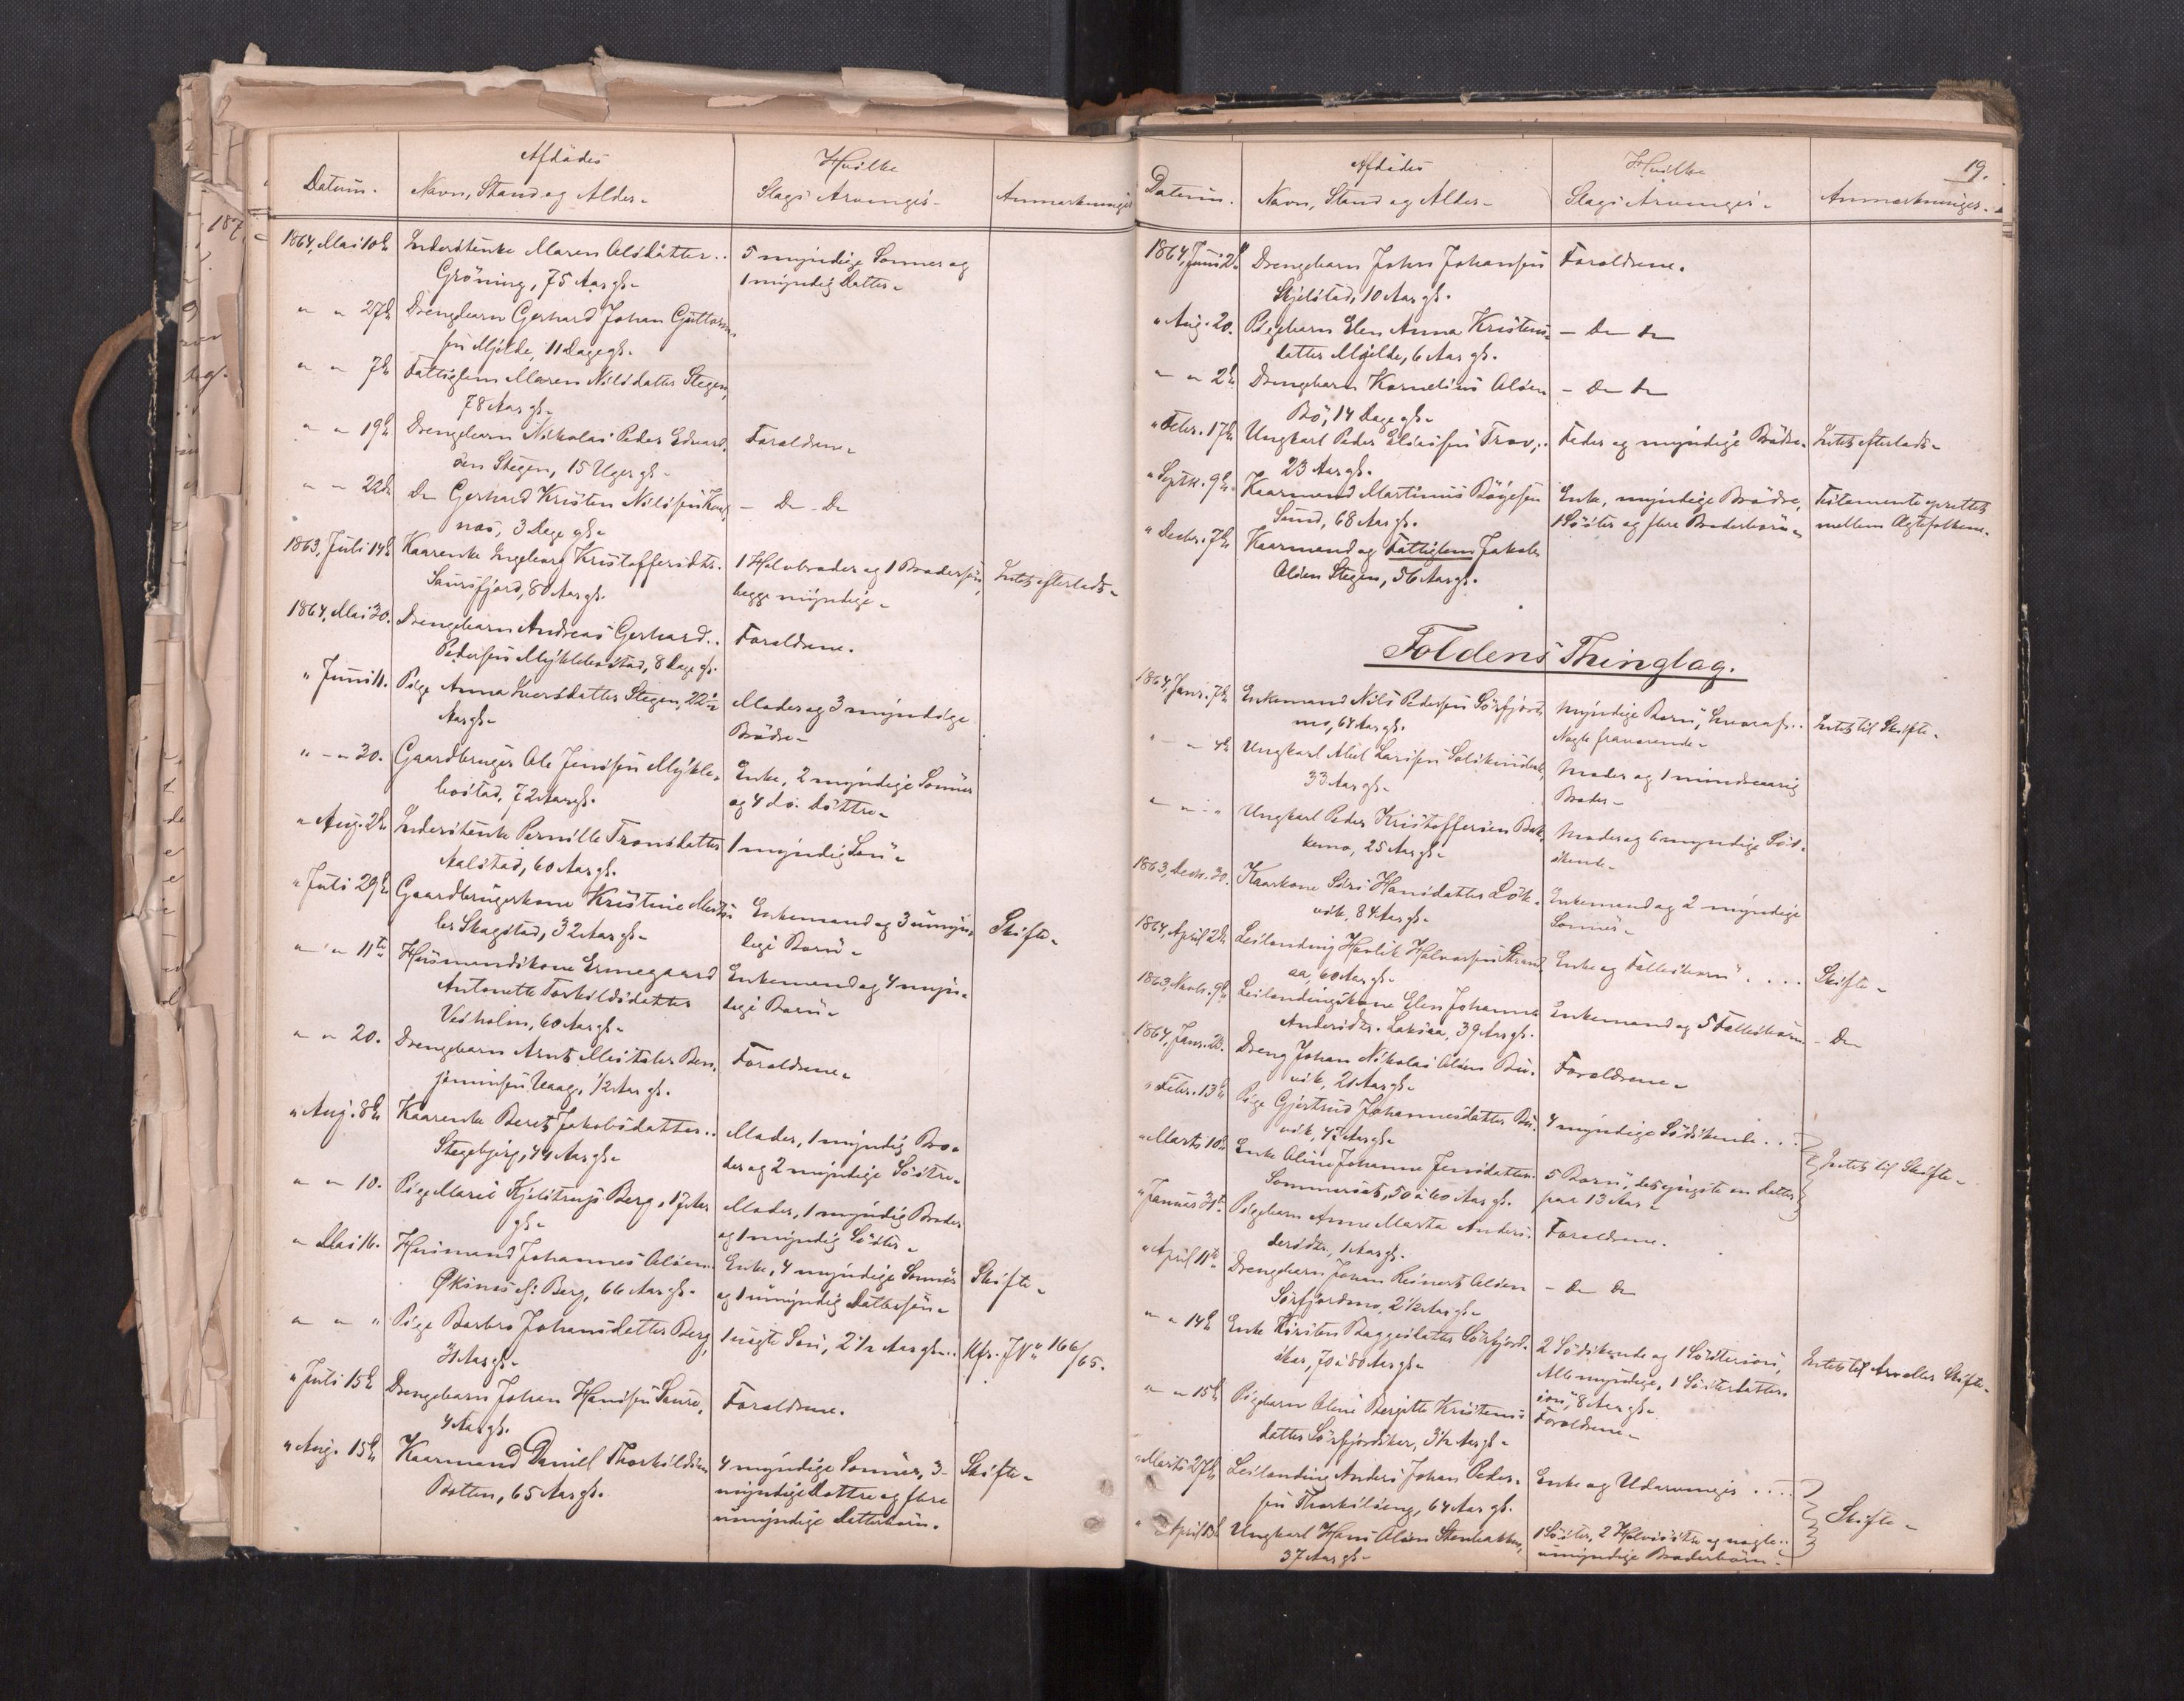 Afdødes
Datum. Navn, Stand og Alder. Hvilke Slags Arvinger. Anmærkninger
1864, Mai 10de Inderstenke Maren Olsdatter .. 5 myndige Sønner og
Grøning, 75 Aar gl. 1 myndig Datter.
" " 27de Drengebarn Gerhard Johan Guttorm-
sen Mjelde, 11 Dage gl.
" " 7de Fattiglem Maren Nilsdatter Stegen,
78 Aar gl.
" " 19de Drengebarn Nikolai Peder Edvard- Forældrene.
sen Stegen, 15 Uger gl.
" " 22de Do Gerhard Kristen Nilssen - Do Do
næs, 3 Dage gl.
1863, Juli 14de Kaarenke Ingeborg Kristoffersdtr. 1 Halvbroder og 1 Brodersøn, Intet efterladt.
Saursfjord, 80 Aar gl. begge myndige.
1864, Mai 30. Drengebarn Andreas Gerhard .. Forældrene.
Pedersen Myklebostad, 8 Dage gl.
" Juni 11. Pige Anna Iversdatter Stegen, 22½ Moder og 3 myndige
Aar gl. Brødre.
" " 30. Gaardbruger Ole Jensen Mykle- Enke, 2 myndige Sønner
bostad, 72 Aar gl. og 4 do. Døttre.
" Aug. 2de Inderstenke Pernille Tronsdatter 1 myndig Søn.
Aalstad, 60 Aar gl.
" Juli 29de Gaardbrugerkone Kristine Enkemand og 3 umyn- Skifte.
Skagstad, 32 Aar gl. dige Børn.
" " 11te Husmandskone Ermegaard Enkemand og 4 myn-
Antonette Torkildsdatter dige Børn.
Vedholm, 60 Aar gl.
" " 20. Drengebarn Arnt Ben- Forældrene.
jaminsen Vaag, ½ Aar gl.
" Aug. 8de Kaarenke Beret Jakobsdatter .. Moder, 1 myndig Bro-
Stegebjerg, 44 Aar gl. der og 2 myndige Søstre.
" " 10. Pige Marie Kjelstrup Berg, 17 Aar Moder, 1 myndig Broder
gl. og 1 myndig Søster.
" Mai 16. Husmand Johannes Olsen Enke, 4 myndige Sønner Skifte.
Øksnes Berg, 66 Aar gl. og 1 umyndig Dattersøn.
" " " Pige Barbro Johansdatter Berg, 1 uægte Søn, 2½ Aar gl. .. Kfr. J N 166/65.
31 Aar gl.
" Juli 15de Drengebarn Johan Hansen Saure, Forældrene.
4 Aar gl.
" Aug. 15de Kaarmand Daniel Thorkildsen 4 myndige Sønner, 3 Skifte.
Botten, 65 Aar gl. myndige Døttre og flere
umyndige Datterbørn.
19.
Afdødes
Datum. Navn, Stand og Alder. Hvilke Slags Arvinger. Anmærkninger.
1864, Juni 2de Drengebarn John Johansen Forældrene.
Skjelstad, 10 Aar gl.
" Aug. 20. Pigebarn Elen Anna Kristens- - Do Do
datter Mjelde, 6 Aar gl.
" " 2de Drengebarn Kornelius Olsen - Do Do
Bø, 14 Dage gl.
" Febr. 17de Ungkarl Peder Eliassen Trov, .. Fader og myndige Brødre. Intet efterladt.
23 Aar gl.
" Septbr. 9de Kaarmand Martinus Børgesen Enke, myndige Brødre, Testamente oprettet
Sund, 68 Aar gl. 1 Søster og flere Broderbørn. mellem Ægtefolkene.
" Decbr. 7de Kaarmand og Fattiglem Jakob
Olsen Stegen, 56 Aar gl.
Foldens Thinglag.
1864, Janr. 7de Enkemand Nils Pedersen Sørfjord- Myndige Børn, hvoraf .. Intet til Skifte.
mo, 64 Aar gl. Nogle fraværende.
" " 4de Ungkarl Abel Larsen Solskinsbak, Moder og 1 mindreaarig
33 Aar gl. Broder.
" " " Ungkarl Peder Kristoffersen Bak- Moder og 6 myndige Sød-
kemo, 25 Aar gl. skende.
1863, Decbr. 30. Kaarkone Siri Hansdatter Løk- Enkemand og 2 myndige
vik, 84 Aar gl. Sønner.
1864, April 2de Leilænding Havlik Halvorsen Strand- Enke og Fællesbørn .... Skifte.
aa, 60 Aar gl.
1863, Novbr. 9de Leilændingskone Elen Johanna Enkemand og 5 Fællesbørn - Do
Andersdtr. Laksaa, 39 Aar gl.
1864, Janr. 28. Dreng Johan Nikolai Olsen Bu- Forældrene.
vik, 21 Aar gl.
" Febr. 13de Pige Gjertrud Johannesdatter Bu- 4 myndige Sødskende ...
vik, 47 Aar gl.
" Marts 10de Enke Oline Johanne Jensdatter 5 Børn, det yngste en Datter Intet til Skifte.
Sommerset, 50 à 60 Aar gl. paa 13 Aar.
" Januar 31te Pigebarn Anne Marta Anders- Forældrene.
dersdtr., 1 Aar gl.
" April 11te Drengebarn Johan Reinert Olsen - Do Do
Sørfjordmo, 2½ Aar gl.
" " 14de Enke Kirsten Baggesdatter Sørfjord- 2 Sødskende og 1 Søstersøn, Intet til Arv eller Skifte.
skar, 70 à 80 Aar gl. Alle myndige, 1 Søsterdatter-
søn, 8 Aar gl.
" " 15de Pigebarn Oline Bergitte Kristens- Forældrene.
datter Sørfjordskar, 3½ Aar gl.
" Marts 27de Leilænding Anders Johan Peder- Enke og Udarvinger ....
sen Thorkilseng, 64 Aar gl. Skifte.
" April 13de Ungkarl Hans Olsen Stenbakken, 1 Søster, 2 Halvsøstre og nogle ..
37 Aar gl. umyndige Broderbørn.